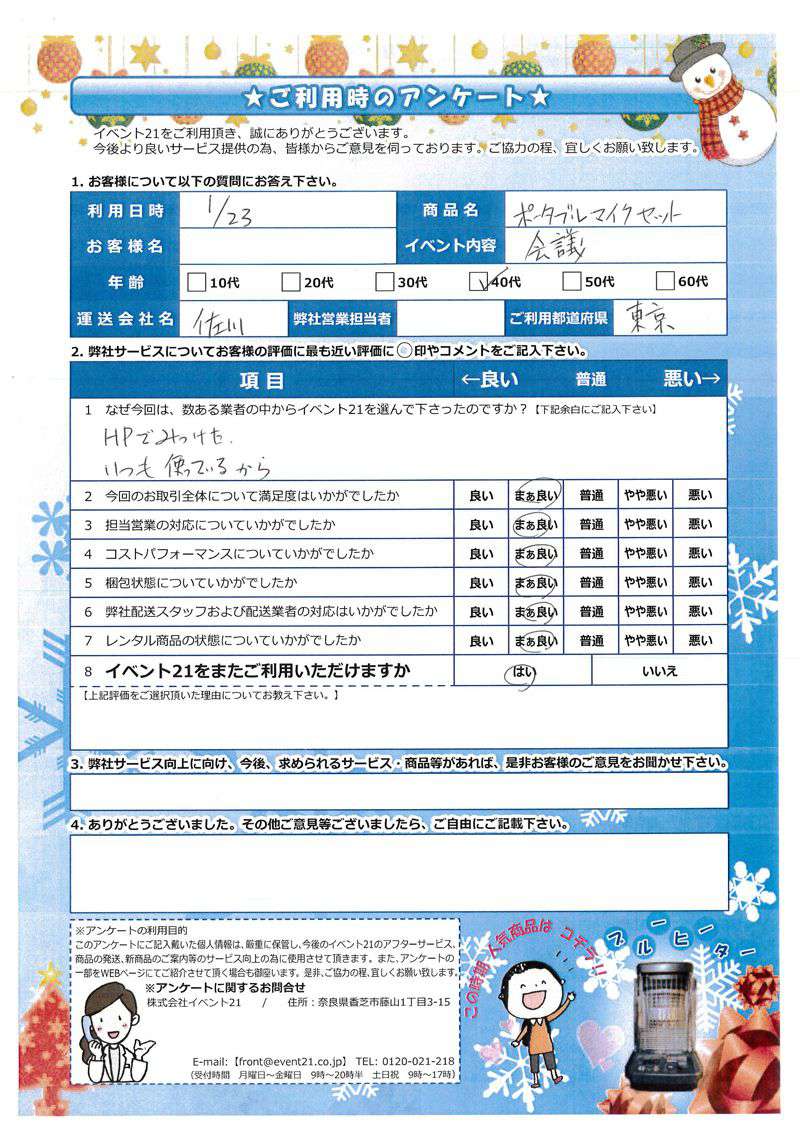 ★ご利用時のアンケート★
イベント21をご利用頂き、誠にありがとうございます。
今後より良いサービス提供の為、皆様からご意見を伺っております。ご協力の程、宜しくお願い致します。
1. お客様について以下の質問にお答え下さい。
利用日時 1/23 商品名 ポータブルマイクセット
お客様名 イベント内容 会議
年齢 10代 20代 30代 40代 50代 60代
運送会社名 佐川 弊社営業担当者 ご利用都道府県 東京
2. 弊社サービスについてお客様の評価に最も近い評価に○印やコメントをご記入下さい。
項目 ←良い 普通 悪い→
1 なぜ今回は、数ある業者の中からイベント21を選んで下さったのですか？【下記余白にご記入下さい】
HPでみつけた.
いつも使っているから
2 今回のお取引全体について満足度はいかがでしたか 良い まぁ良い 普通 やや悪い 悪い
3 担当営業の対応についていかがでしたか 良い まぁ良い 普通 やや悪い 悪い
4 コストパフォーマンスについていかがでしたか 良い まぁ良い 普通 やや悪い 悪い
5 梱包状態についていかがでしたか 良い まぁ良い 普通 やや悪い 悪い
6 弊社配送スタッフおよび配送業者の対応はいかがでしたか 良い まぁ良い 普通 やや悪い 悪い
7 レンタル商品の状態についていかがでしたか 良い まぁ良い 普通 やや悪い 悪い
8 イベント21をまたご利用いただけますか はい いいえ
【上記評価をご選択頂いた理由についてお教え下さい。】
3. 弊社サービス向上に向け、今後、求められるサービス・商品等があれば、是非お客様のご意見をお聞かせ下さい。
4. ありがとうございました。その他ご意見等ございましたら、ご自由にご記載下さい。
※アンケートの利用目的
このアンケートにご記入戴いた個人情報は、厳重に保管し、今後のイベント21のアフターサービス、
商品の発送、新商品のご案内等のサービス向上の為に使用させて頂きます。また、アンケートの
一部をWEBページにてご紹介させて頂く場合も御座います。是非、ご協力の程、宜しくお願い致します。
※アンケートに関するお問合せ
株式会社イベント21 / 住所：奈良県香芝市藤山1丁目3-15
E-mail:【front@event21.co.jp】 TEL: 0120-021-218
（受付時間 月曜日～金曜日 9時～20時半 土日祝 9時～17時）
この時期 人気商品は コチラ!!
ブルーヒーター